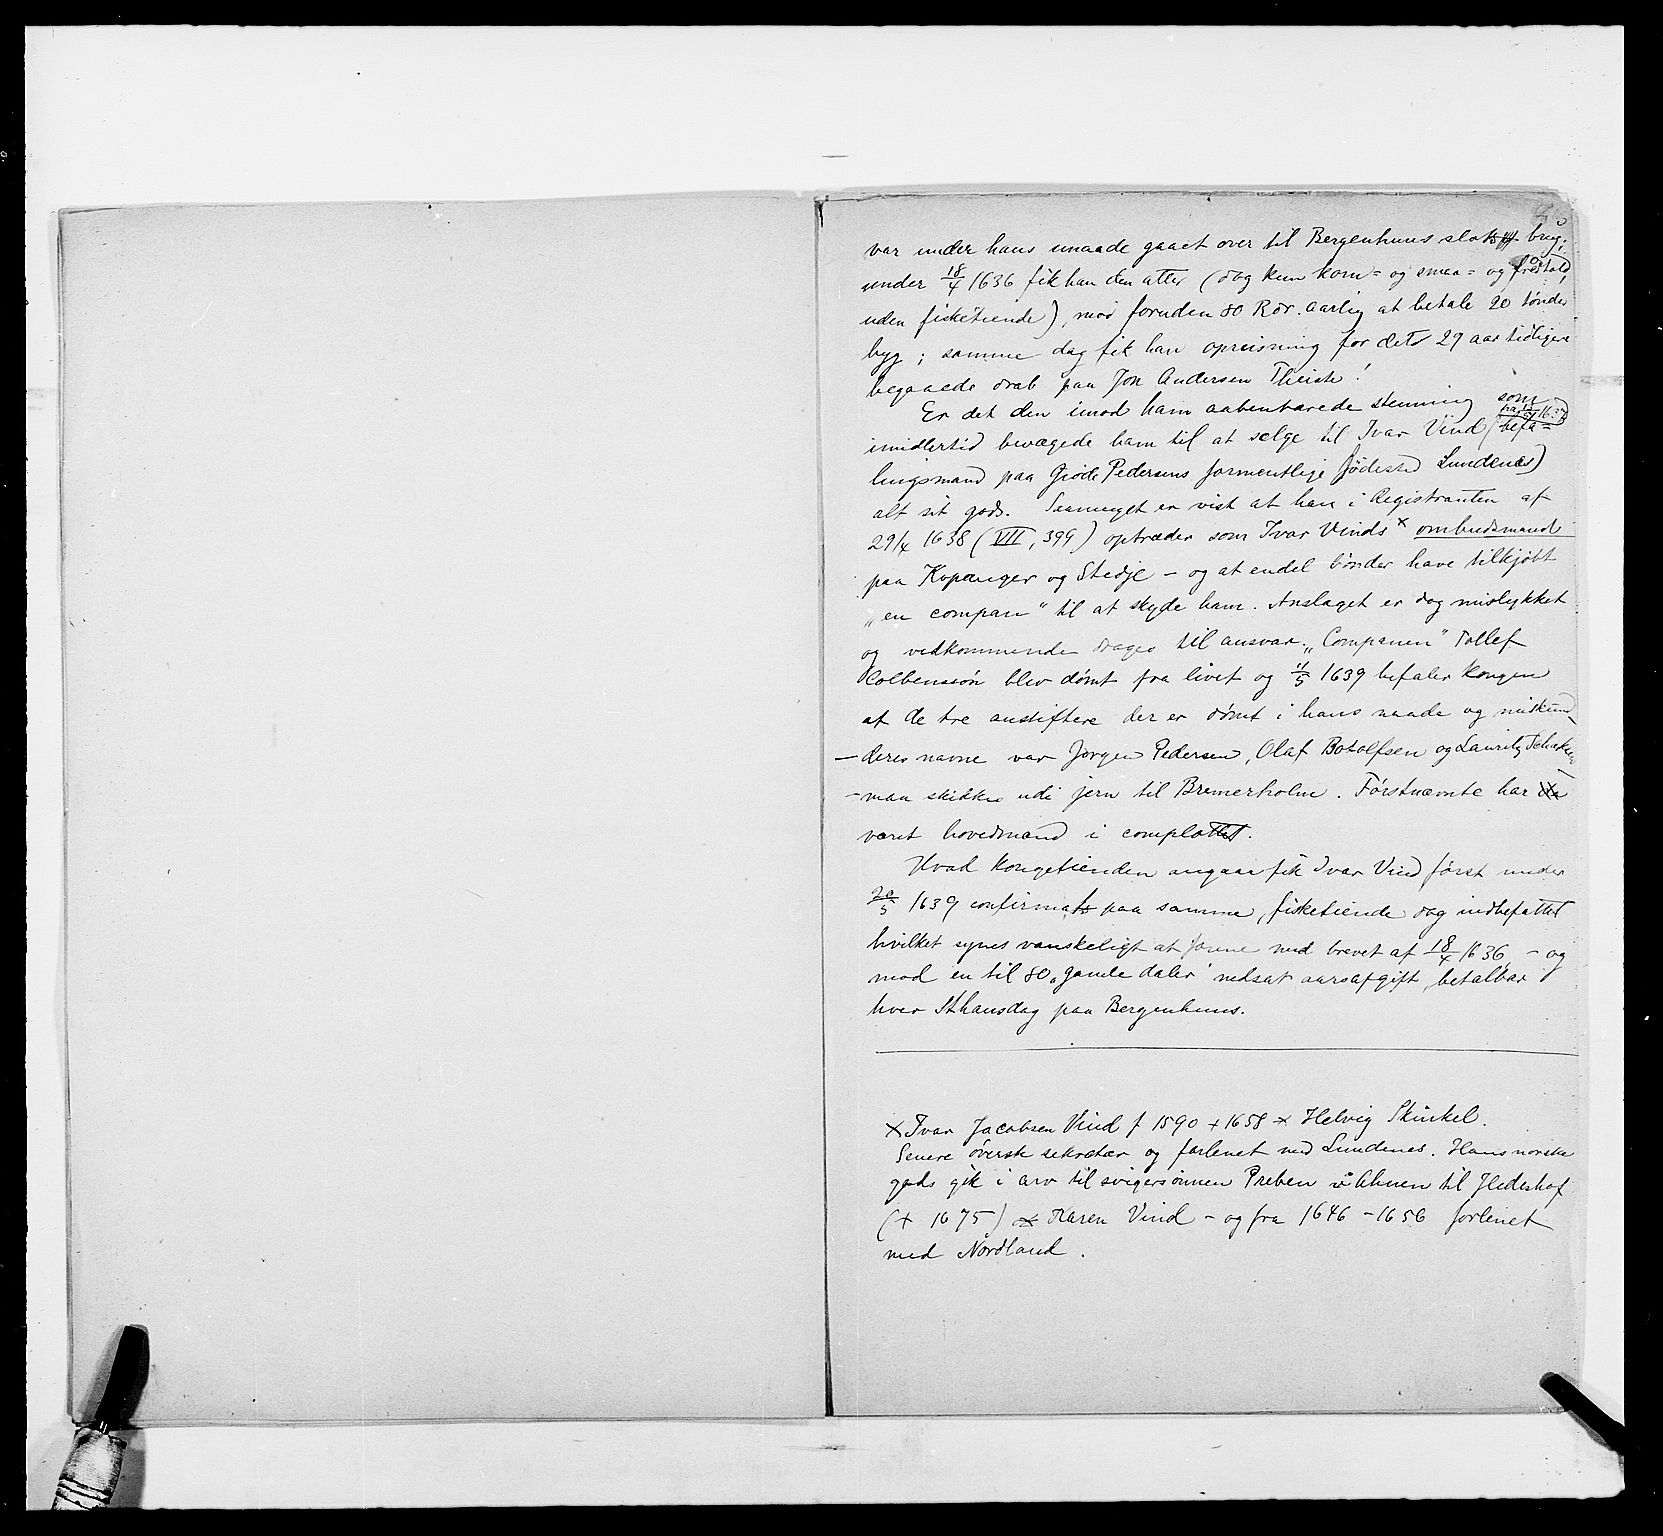 var under hans unaade gaaet over til Bergenhuus slots brug;
under 18/4 1636 fik han den atter (dog kun korn= og smaa= og
uden fisketiende), mod foruden 80 Rdr. aarlig at betale 20 tønder
byg; samme dag fik han opreisning for dets 29 aar tidligere
begaaede drab paa Jon Andersen Theiste!
Er det den imod ham aabenbarede stemning som
imidlertid bevægede ham til at sælge til Ivar Vind (befa=
lingsmand paa Giøde Pedersens formentlige fødested Lundenæs)
alt sit gods. Saameget er vist at han i Registranten af
29/4 1638 (VII, 399) optræder som Ivar Vinds x ombudsmand
paa Kopanger og Stedje – og at endel bønder have tilkjøbt
„en compan“ til at skyde ham. Anslaget er dog mislykket
og vedkommende drages til ansvar. „Companen“ Tollef
Colbenssøn blev dømt fra livet og 11/5 1639 befaler Kongen
at de tre anstiftere der er dømt i hans naade og miskund
– deres navne var Jørgen Pedersen, Olaf Botolfsen og Lauritz
– man skikke udi jern til Bremerholm. Førstnævnte har
været hovedmand i complottet.
Hvad Kongetienden angaar fik Ivar Vind først under
20/5 1639 confirmats paa samme, fisketiende dog indbefattet
hvilket synes vanskeligt at forene med brevet af 18/4 1636, – og
mod en til 80 „gamle daler“ nedsat aarsafgift, betalbar
hver St Hansdag paa Bergenhuus.
x Ivar Jacobsen Vind f 1590 + 1658 x Helvig Skinkel.
Senere øverste sekretær og forlenet med Lundenes. Hans norske
gods gik i arv til svigersønnen Preben v Ahnen til
(+ 1675) x Karen Vind – og fra 1646 – 1656 forlenet
med Nordland.